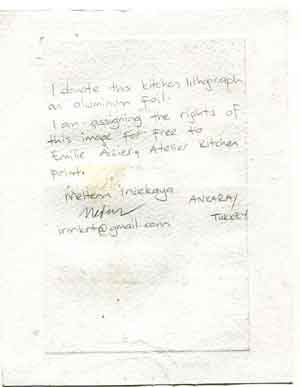 I donate this kitchen lithograph
on aluminum foil.
I am assigning the rights of
this image for free to
Emilie Aizier, Atelier Kitchen
print.
Meltem
ANKARA/
TURKEY
@gmail.com